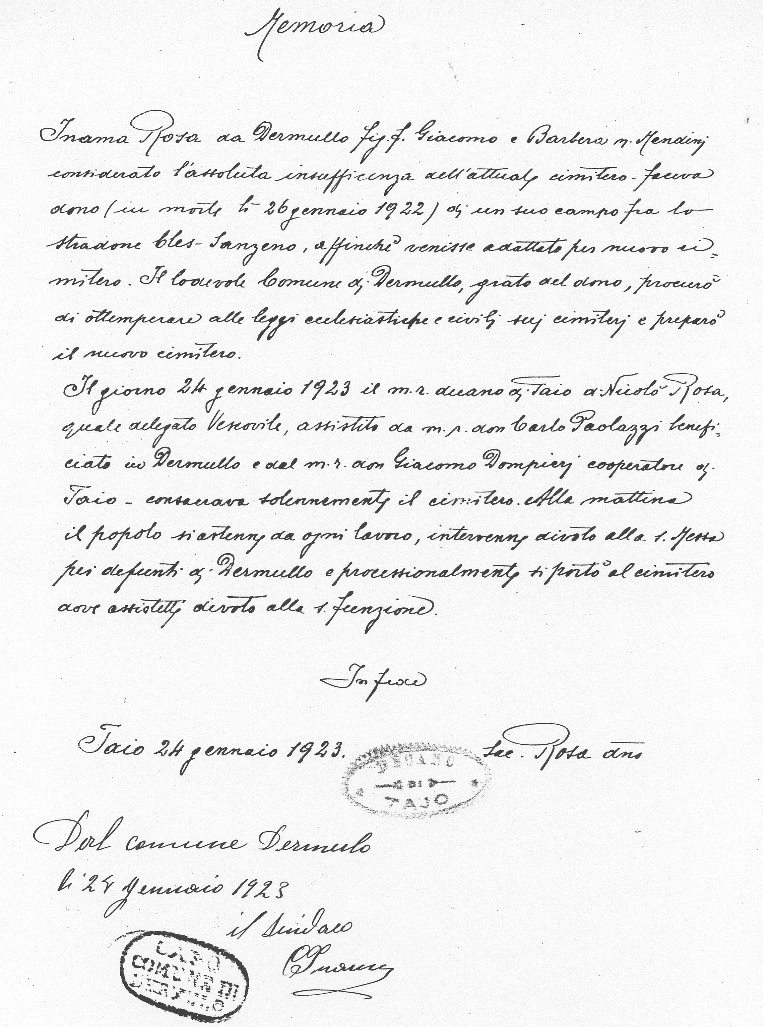 Memoria
Inama Rosa da Dermullo fig. f. Giacomo e Barbera n. Mendini
considerato l'assoluta insufficenza dell'attuale cimitero - faceva
dono (in morte li 26 gennaio 1922) di un suo campo fra lo
stradone Cles - Sanzeno, affinchè venisse adattato per nuovo ci=
mitero. Il lodevole Comune di Dermullo, grato del dono, procurò
di ottemperare alle leggi ecclesiastiche e civili sui cimiteri e preparò
il nuovo cimitero.
Il giorno 24 gennaio 1923 il m. r. decano di Taio d. Nicolò Rosa,
quale delegato Vescovile, assistito da m. r. don Carlo Paolazzi benefi=
ciato in Dermullo e dal m. r. don Giacomo Dompieri cooperatore di
Taio - consacrava solennemente il cimitero. Alla mattina
il popolo si astenne da ogni lavoro, intervenne divoto alla s. Messa
pei defunti di Dermullo e processionalmente si portò al cimitero
dove assistette divoto alla s. funzione.
In fede
Taio 24 gennaio 1923.
Sac. Rosa dno
DECANO
DI
TAJO
Dal comune Dermulo
li 24 Gennaio 1923
il Sindaco
Inama
CAPO
COMUNE DI
DERMULO